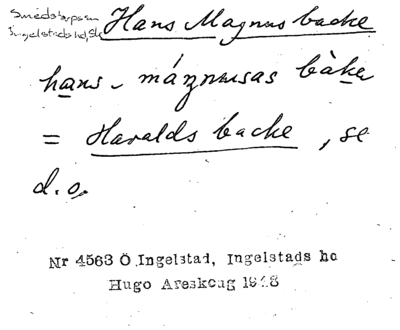 Smedstorps sn
Ingelstads hd, Sk
Hans Magnus backe
hans- mágnusas bàke
= Haralds backe, se
d.o.
Nr 4563 Ö Ingelstad, Ingelstads hd
Hugo Areskoug 1948